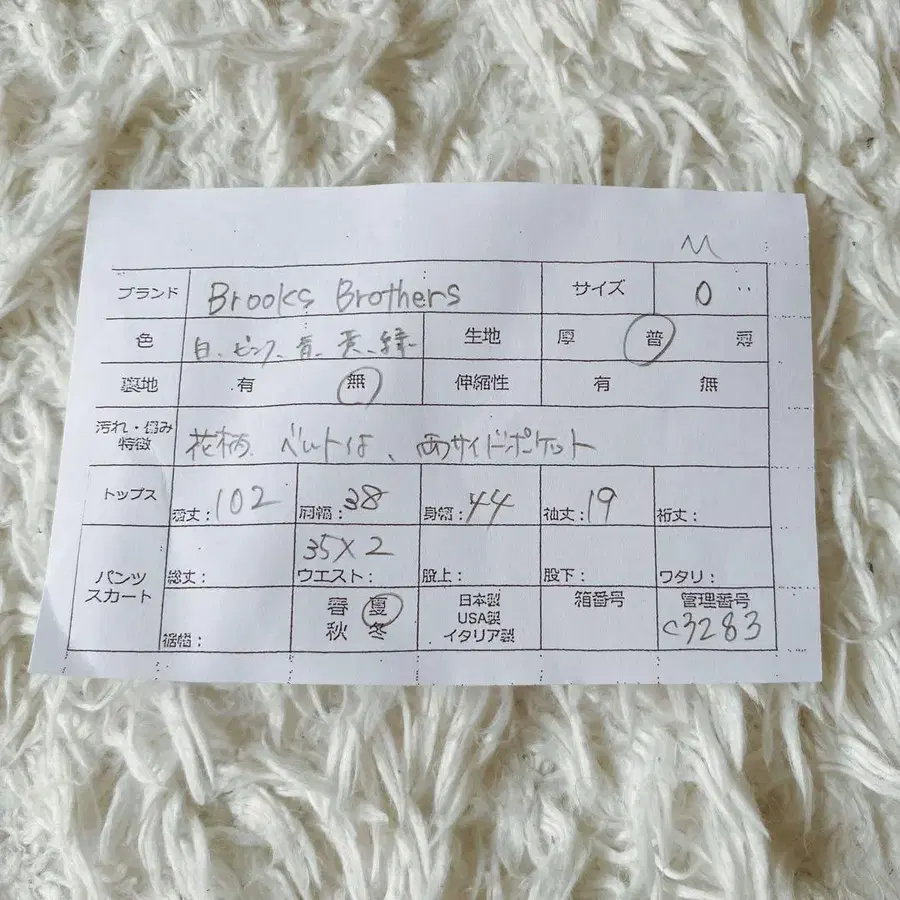 M
ブランド Brooks Brothers サイズ 0
色 白、ピンク、青、黄、緑 生地 厚 普 薄
裏地 有 無 伸縮性 有 無
汚れ・傷み
特徴 花柄、ベルト 両サイドポケット
トップス 着丈:102 肩幅:38 身幅:44 袖丈:19 裄丈:
パンツ
スカート 総丈: 35×2 ウエスト: 股上: 股下: ワタリ:
裾幅: 春 夏 日本製 箱番号 管理番号
秋 冬 USA製 C3283
イタリア製